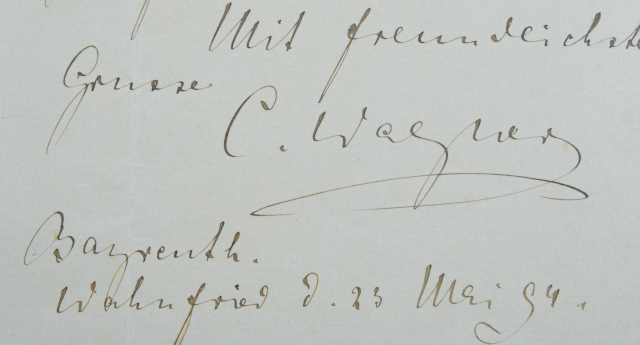 Mit freundlichste
Grusse
C. Wagner
Bayreuth.
Wahnfried d. 23 Mai 94.